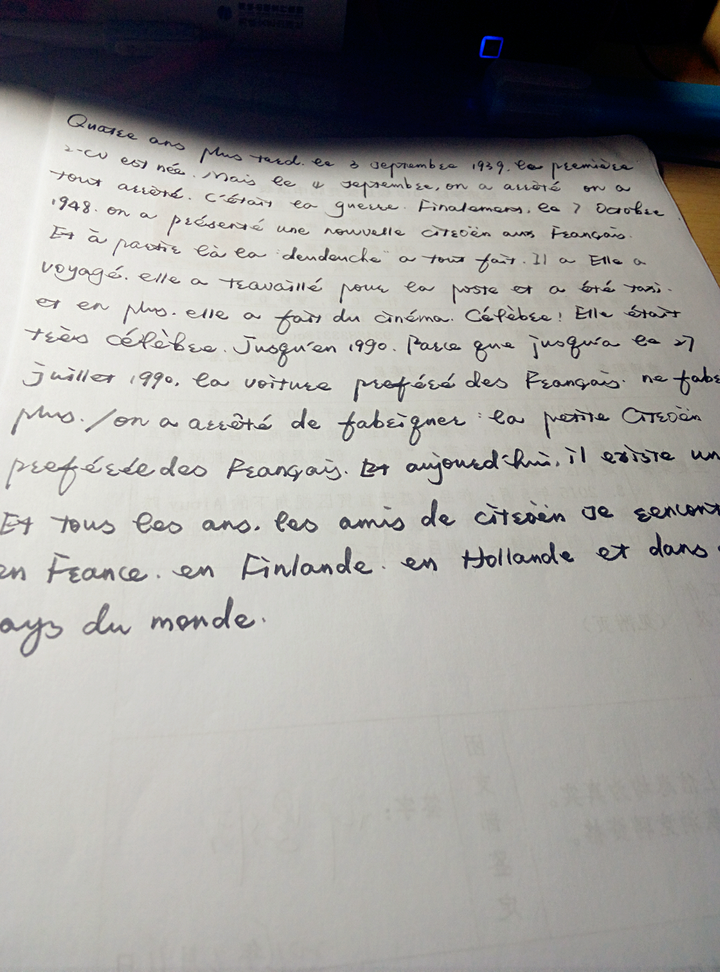 Quatre ans plus tard. le 3 septembre 1939. la première
2-CV est née. Mais le 4 septembre, on a arrêté on a
tout arrêté. C'était la guerre. Finalement, le 7 Octobre
1948. on a présenté une nouvelle citroën aux Français.
Et à partir là la "deudeuche" a tout fait. Il a Elle a
voyagé. elle a travaillé pour la poste et a été taxi.
et en plus. elle a fait du cinéma. Célèbre! Elle était
très célèbre. Jusqu'en 1990. Parce que jusqu'à le 27
juillet 1990, la voiture preféré des Français. ne fabr
plus. / on a arrêté de fabriquer la petite Citroën
preférée des Français. Et aujourd'hui, il existe un
Et tous les ans. les amis de citroën se rencont
en France. en Finlande. en Hollande et dans
ays du monde.